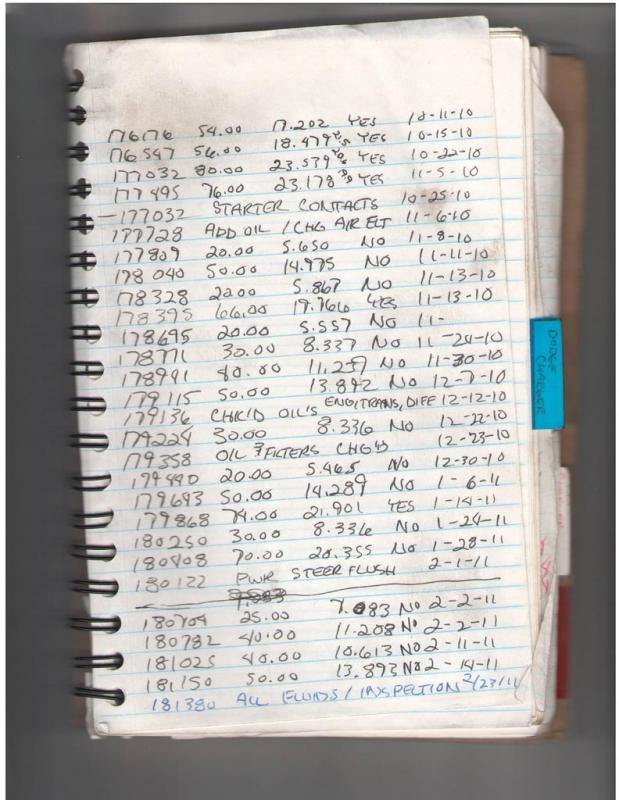 176176 54.00 17.202 YES 10-11-10
176547 56.00 18.479 YES 10-15-10
177032 80.00 23.539 YES 10-22-10
177495 76.00 23.178 YES 11-5-10
-177032 STARTER CONTACTS 10-25-10
177728 ADD OIL / CHG AIR ELT 11-6-10
177809 20.00 5.650 NO 11-8-10
178040 50.00 14.975 NO 11-11-10
178328 20.00 5.867 NO 11-13-10
178395 66.00 19.766 YES 11-13-10
178695 20.00 5.557 NO 11-
178771 30.00 8.337 NO 11-24-10
178991 40.00 11.237 NO 11-30-10
179115 50.00 13.892 NO 12-7-10
179136 CHK'D OIL'S ENG, TRANS, DIFF 12-12-10
179224 30.00 8.336 NO 12-22-10
179358 OIL & FILTERS CHG'D 12-23-10
179440 20.00 5.465 NO 12-30-10
179643 50.00 14.289 NO 1-6-11
179868 74.00 21.901 YES 1-14-11
180250 30.00 8.336 NO 1-24-11
180408 70.00 20.355 NO 1-28-11
180122 PWR STEER FLUSH 2-1-11
180704 25.00 7.083 NO 2-2-11
180782 40.00 11.208 NO 2-2-11
181025 40.00 10.613 NO 2-11-11
181150 50.00 13.893 NO 2-14-11
181380 ALL FLUIDS / INSPECTION 2/23/11
DODGE
CHARGER